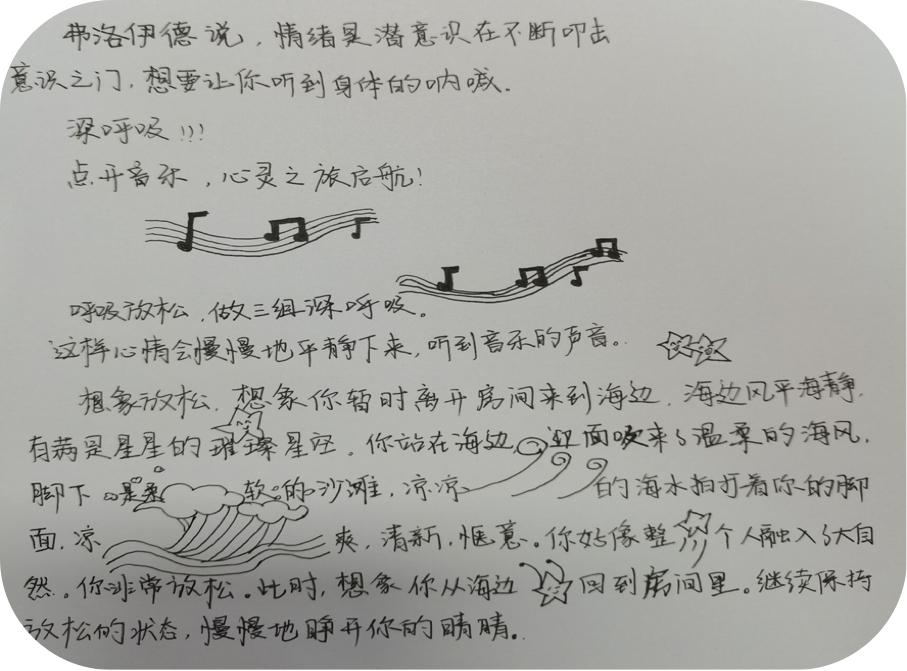 弗洛伊德说，情绪是潜意识在不断叩击
意识之门，想要让你听到身体的呐喊。
深呼吸!!!
点开音乐，心灵之旅启航！
呼吸放松，做三组深呼吸。
这样心情会慢慢地平静下来，听到音乐的声音。
想象放松，想象你暂时离开房间来到海边，海边风平海静，
有满是星星的璀璨星座。你站在海边，迎面吹来了温柔的海风，
脚下是柔软的沙滩，凉凉的海水拍打着你的脚
面，凉爽，清新，惬意。你好像整个人融入了大自
然。你非常放松。此时，想象你从海边回到房间里。继续保持
放松的状态，慢慢地睁开你的眼睛。